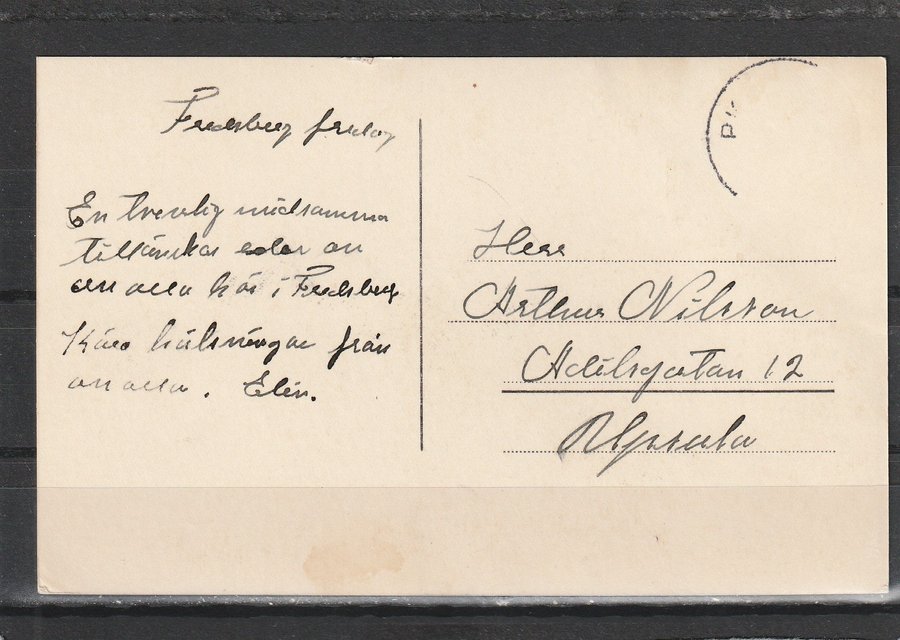 Fredsberg fredag
En trevlig midsommar
tillönskas eder av
oss alla här i Fredsberg
Kära hälsningar från
oss alla. Elin.
Herr
Arthur Nilsson
Adilsgatan 12
Upsala